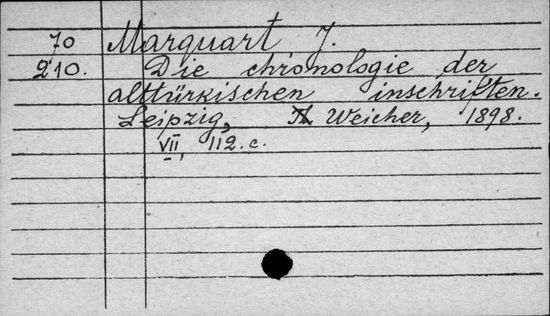 70 Marquart J.
210. Die chronologie der
alttürkischen inschriften.
Leipzig, Weicher, 1898.
VII, 112 c.